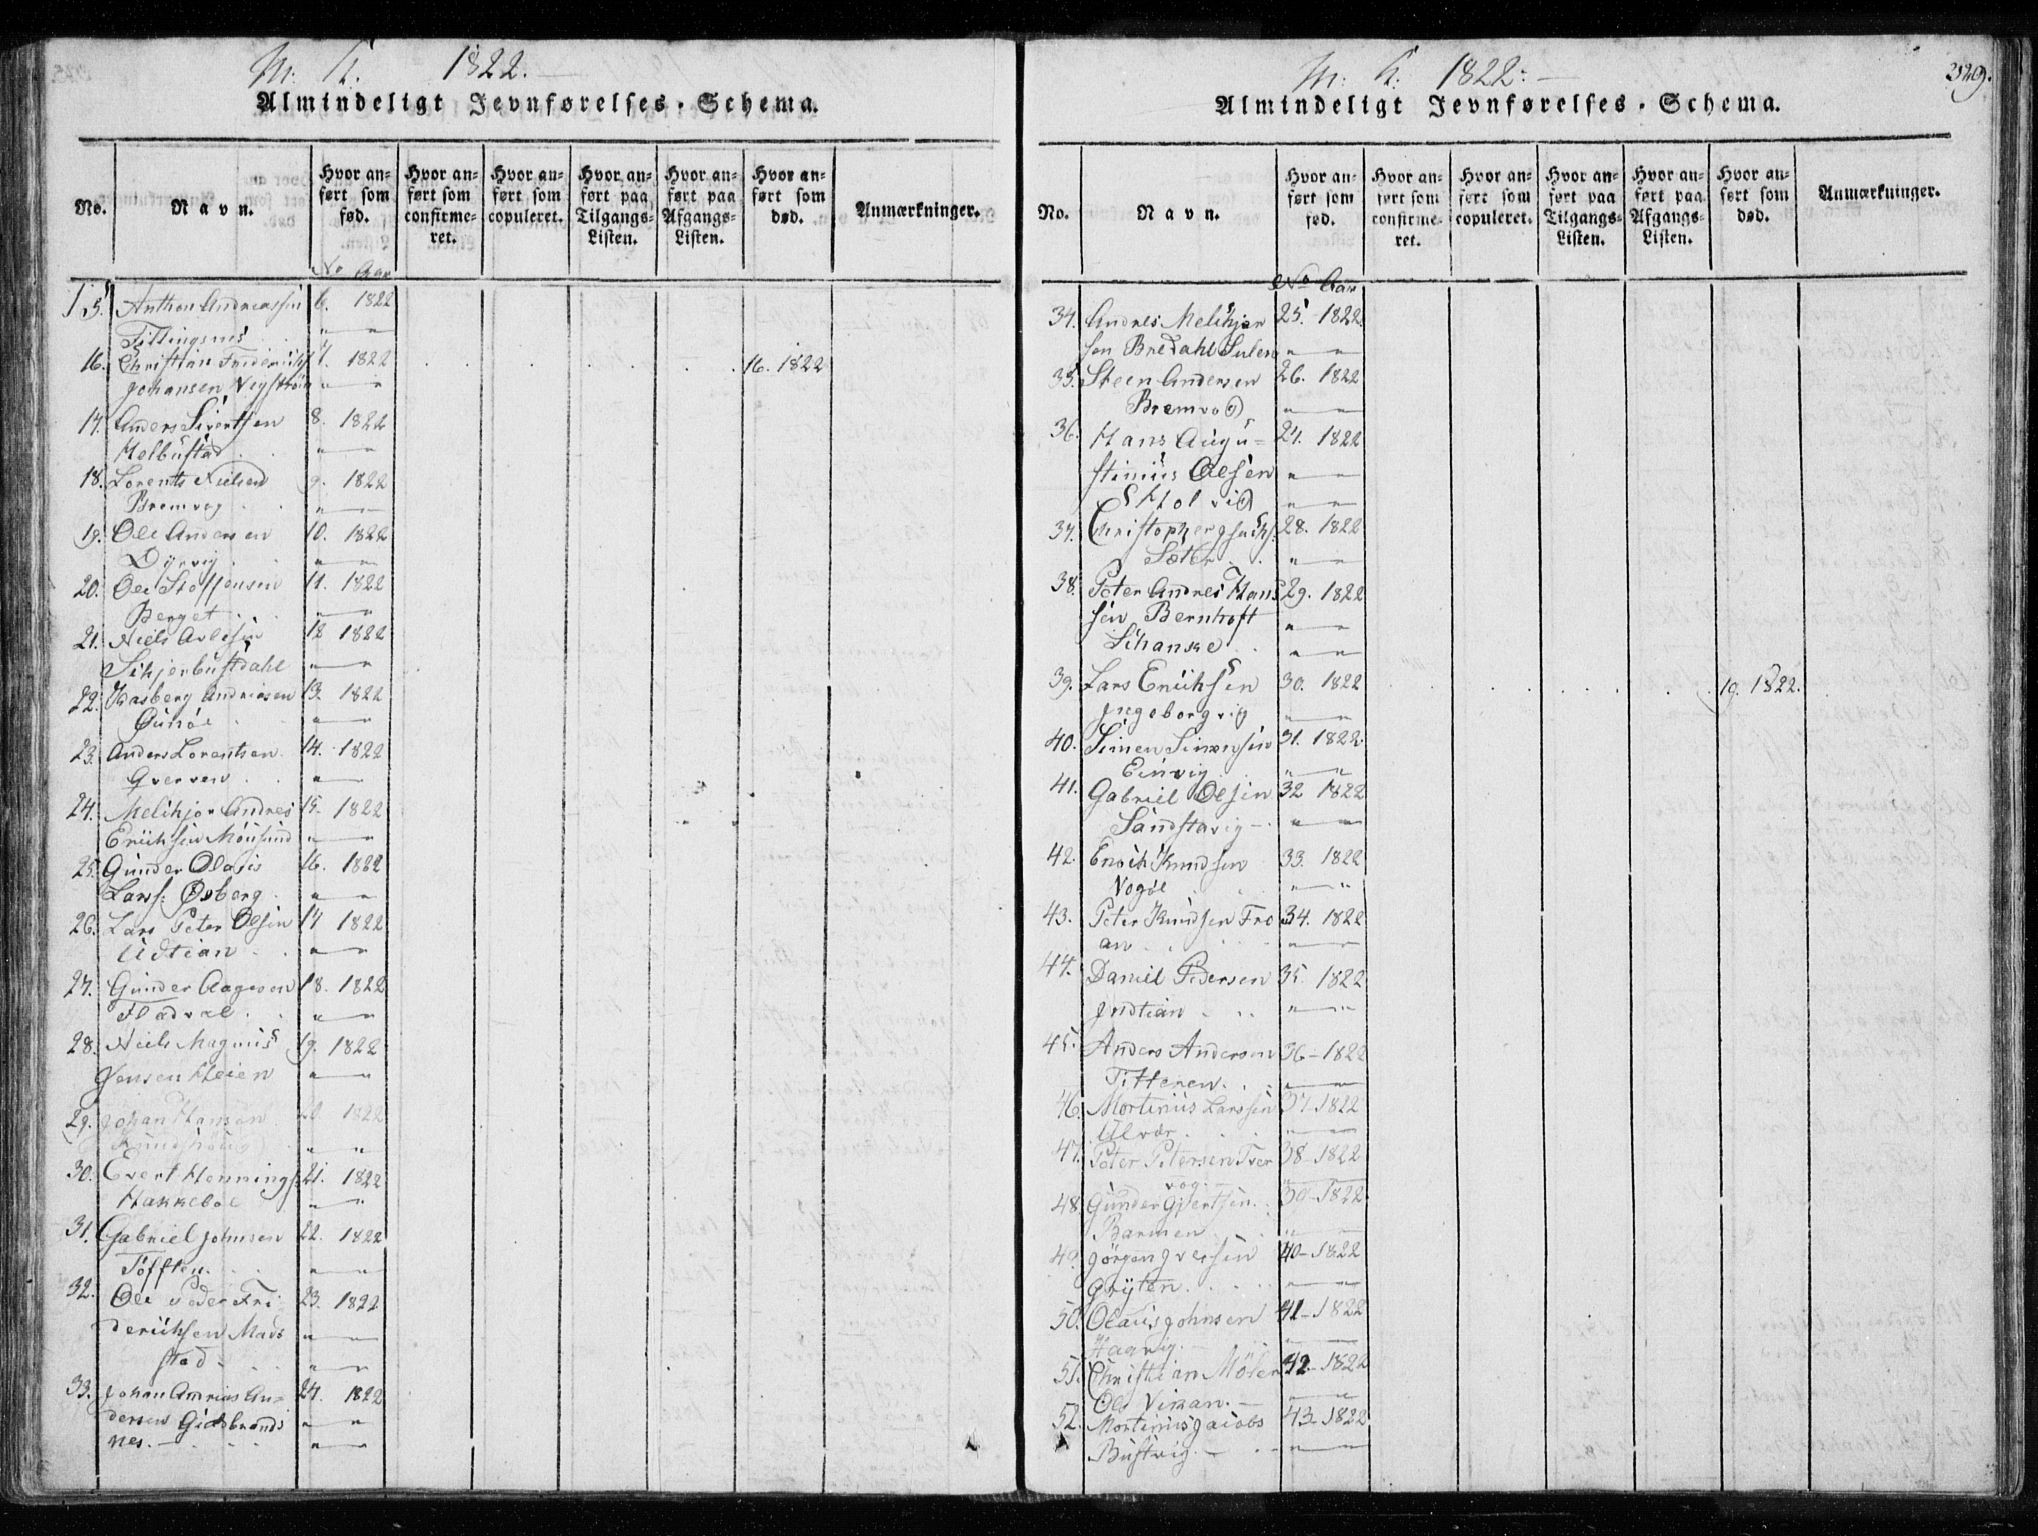 M. K. 1822.
Almindeligt Jevnførelses-Schema.
No.
Navn.
Hvor anført som fød.
Hvor anført som confirmeret.
Hvor anført som copuleret.
Hvor anført paa Tilgangs-Listen.
Hvor anført paa Afgangs-Listen.
Hvor anført som død.
Anmærkninger.
No Aar
15. Anthon Andreassen 6. 1822
Tittingsnes " "
16. Christian Friderichs 7. 1822 16. 1822
Johansen " "
17. Anders Sivertsen 8. 1822
Helbustad " "
18. Lorents Nielsen 9. 1822
Bremvog " "
19. Ole Andersen 10. 1822
Dyrvig " "
20. Ole Stoffensen 11. 1822
Berget " "
21. Niels 12 1822
" "
22. Kasberg Andriasen 13. 1822
" "
23. Anders Lorentsen 14. 1822
Qverven "
24. Melchjor Andres 15. 1822
Erichsen Mousund " "
25. Gunder Olaus 16. 1822
Larss: Øsberg " "
26. Lars Peter Olsen 17 1822
Udtian " "
27. Gunder Aagesen 18. 1822
Fladval " "
28. Niels Magnus 19. 1822
Jensen Heien " "
29. Johan Hansen 20 1822
" "
30. Evert Hennings: 21. 1822
Hakkeboe " "
31. Gabriel Johnsen 22. 1822
Tofften. " "
32. Ole Peder Fri- 23. 1822
derichsen Mads " "
stad " "
33. Johan Andreas An- 24. 1822
dersen Gidsbrands " "
nes. " "
M. K. 1822.
329.
Almindeligt Jevnførelses-Schema.
No.
Navn.
Hvor anført som fød.
Hvor anført som confirmeret.
Hvor anført som copuleret.
Hvor anført paa Tilgangs-Listen.
Hvor anført paa Afgangs-Listen.
Hvor anført som død.
Anmærkninger.
No Aar
34. Andres Melchjor 25. 1822.
sen Bredahl Sulen " "
35. Steen Andersen 26. 1822
Bremvog " "
36. Hans Augu- 27. 1822
stinus Olsen " "
Skolvig " "
37. Christopher 28. 1822
Sæter " "
38. Peter Andres Hans 29. 1822
sen Bernhoft " "
Schanke " "
39. Lars Erichsen 30. 1822 19. 1822.
Ingeborgvig " "
40. Simen Simensen 31. 1822
Eidvig " "
41. Gabriel Olsen 32 1822
Sandstavig " "
42. Enoch Knudsen 33. 1822
Vogøe " "
43. Peter Knudsen Fro 34. 1822
an " "
44. Daniel Pedersen 35. 1822
Indtian " "
45. Anders Andersen 36-1822
Titteren " "
46. Mortinus Larssen 37-1822
Ulvær " "
47. Peter Petersen Tver 38-1822
vog
48. Gunder Gjertsen 39-1822
Barmen " "
49. Jørgen Iversen 40-1822
Gryten " "
50. Olaus Johnsen 41-1822
Hagvig "
51. Christian Møler 42-1822
Ols Vikan. " "
52. Mortinus Jacobs 43-1822
Bustvig " "